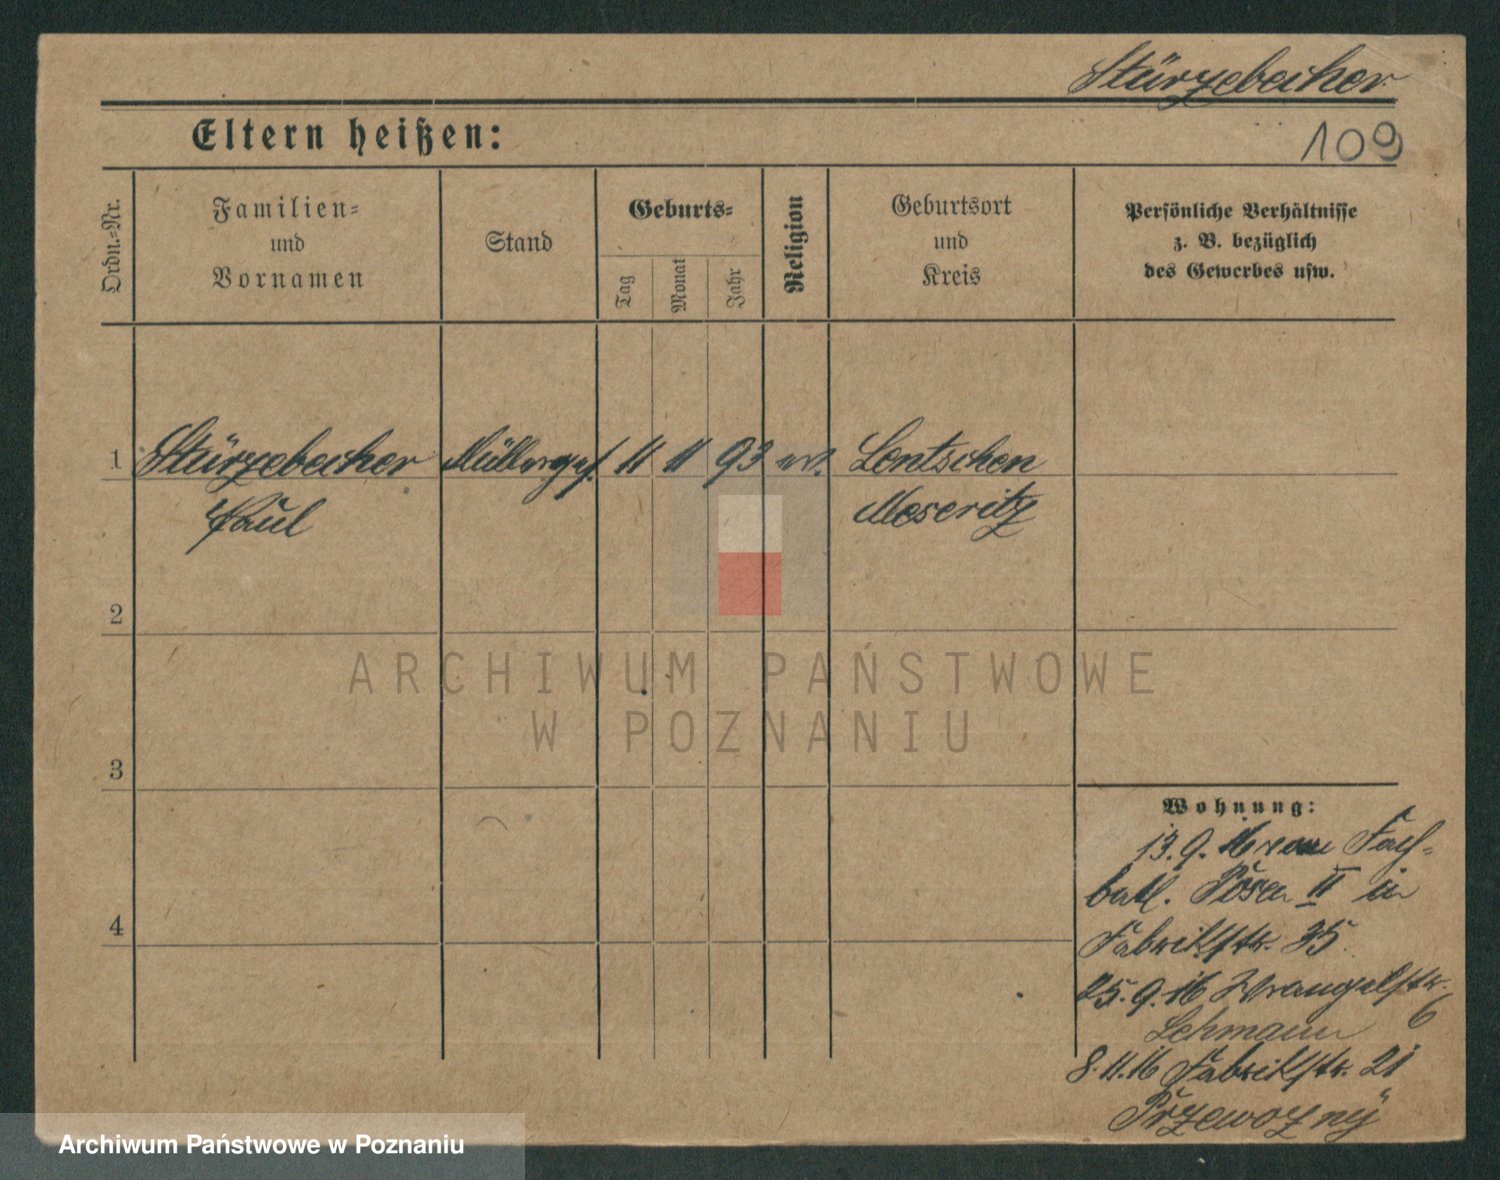 Stürzebecher
Eltern heißen:
109
Ordn.-Nr.
Familien-
und
Vornamen
Stand
Geburts-
Tag
Monat
Jahr
Religion
Geburtsort
und
Kreis
Persönliche Verhältnisse
z. B. bezüglich
des Gewerbes usw.
1
Stürzebecher
Paul
Müllerges.
11
11
93
Lentschen
Meseritz
2
3
4
Wohnung:
13.9.16 vom
batl. Posen II in
Fabrikstr. 35.
25.9.16 Wrangelstr.
Lehmann 6
8.11.16 Fabrikstr. 21
Przewozny
ARCHIWUM PAŃSTWOWE
W POZNANIU
Archiwum Państwowe w Poznaniu